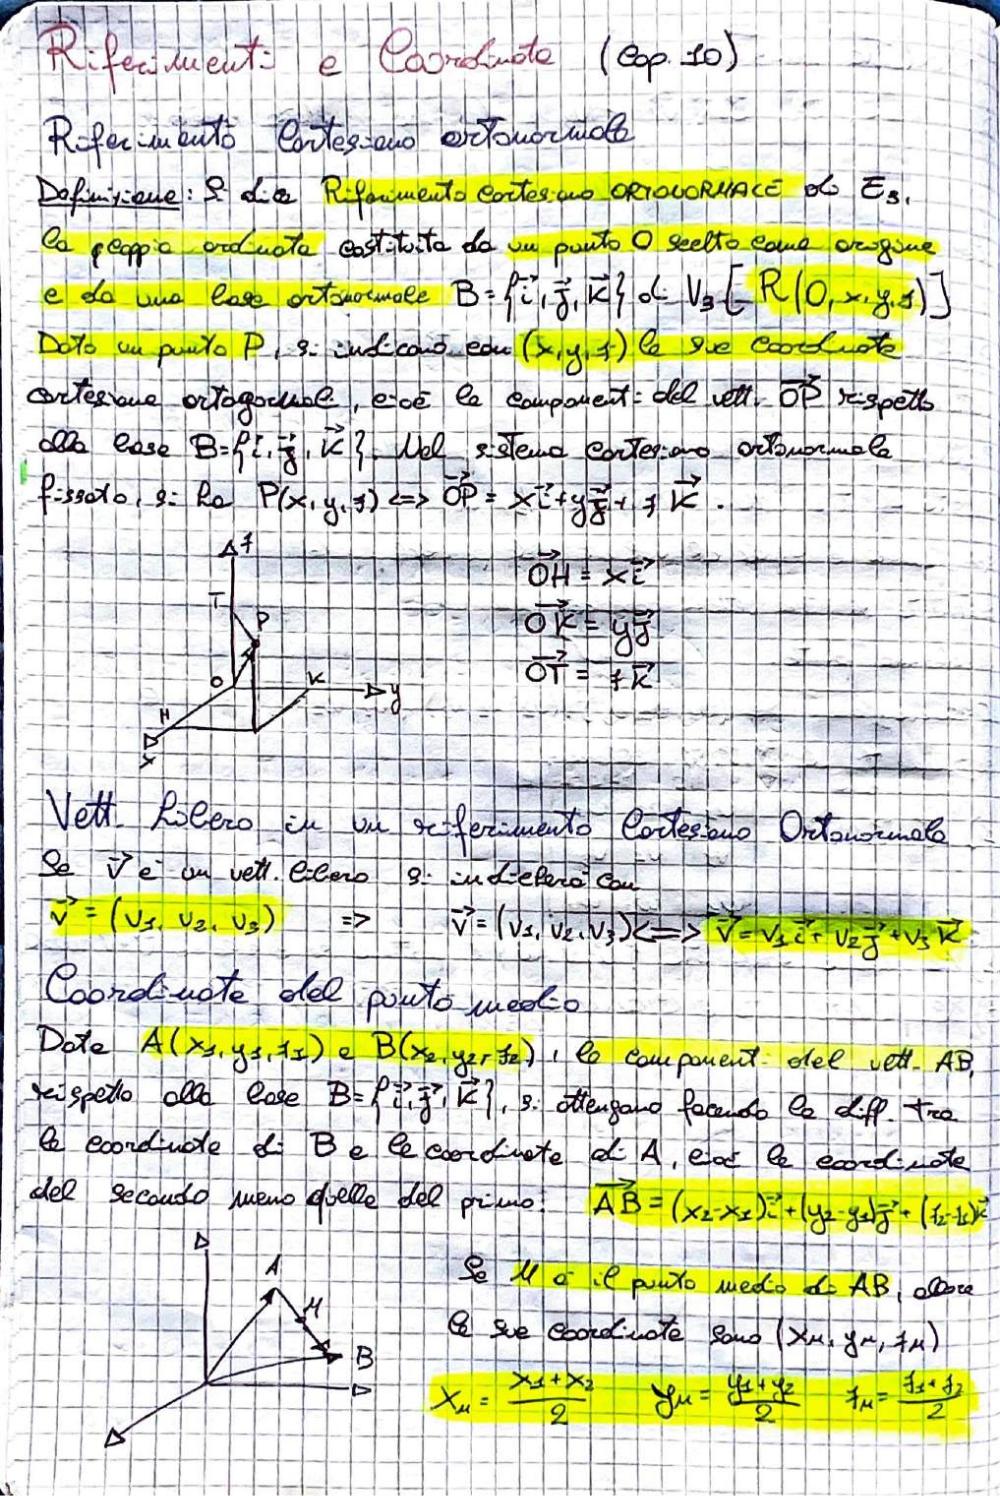 Riferimenti e Coordinate (cap. 10)
Riferimento Cartesiano ortonormale
Definizione: Si dice Riferimento cartesiano ORTONORMALE di E₃,
la coppia ordinata costituita da un punto O scelto come origine
e da una base ortonormale B={i⃗, j⃗, k⃗} di V₃ [R(O, x, y, z)]
Dato un punto P, si indicano con (x, y, z) le sue coordinate
cartesiane ortogonale, cioè le componenti del vett. OP⃗ rispetto
alla base B={i, j⃗, k⃗}. Nel sistema cartesiano ortonormale
fissato, si ha P(x, y, z) <=> OP⃗ = xi⃗+yj⃗+zk⃗.
z
T
P
O
K
y
H
x
OH⃗ = xi⃗
OK⃗ = yj⃗
OT⃗ = zk⃗
Vett. Libero in un riferimento Cartesiano Ortonormale
Se v⃗ è un vett. libero si indicherà con
v⃗ = (v₁, v₂, v₃) => v⃗ = (v₁, v₂, v₃) <=> v⃗ = v₁i⃗+v₂j⃗+v₃k⃗
Coordinate del punto medio
Date A(x₁, y₁, z₁) e B(x₂, y₂, z₂), le componenti del vett. AB,
rispetto alla base B={i⃗, j⃗, k⃗}, si ottengano facendo la diff. tra
le coordinate di B e le coordinate di A, cioè le coordinate
del secondo meno quelle del primo: AB⃗ = (x₂-x₁)i⃗+(y₂-y₁)j⃗+(z₂-z₁)k⃗
A
M
B
Se M è il punto medio di AB, allora
le sue coordinate sono (xM, yM, zM)
xM = x₁+x₂/2 yM = y₁+y₂/2 zM = z₁+z₂/2